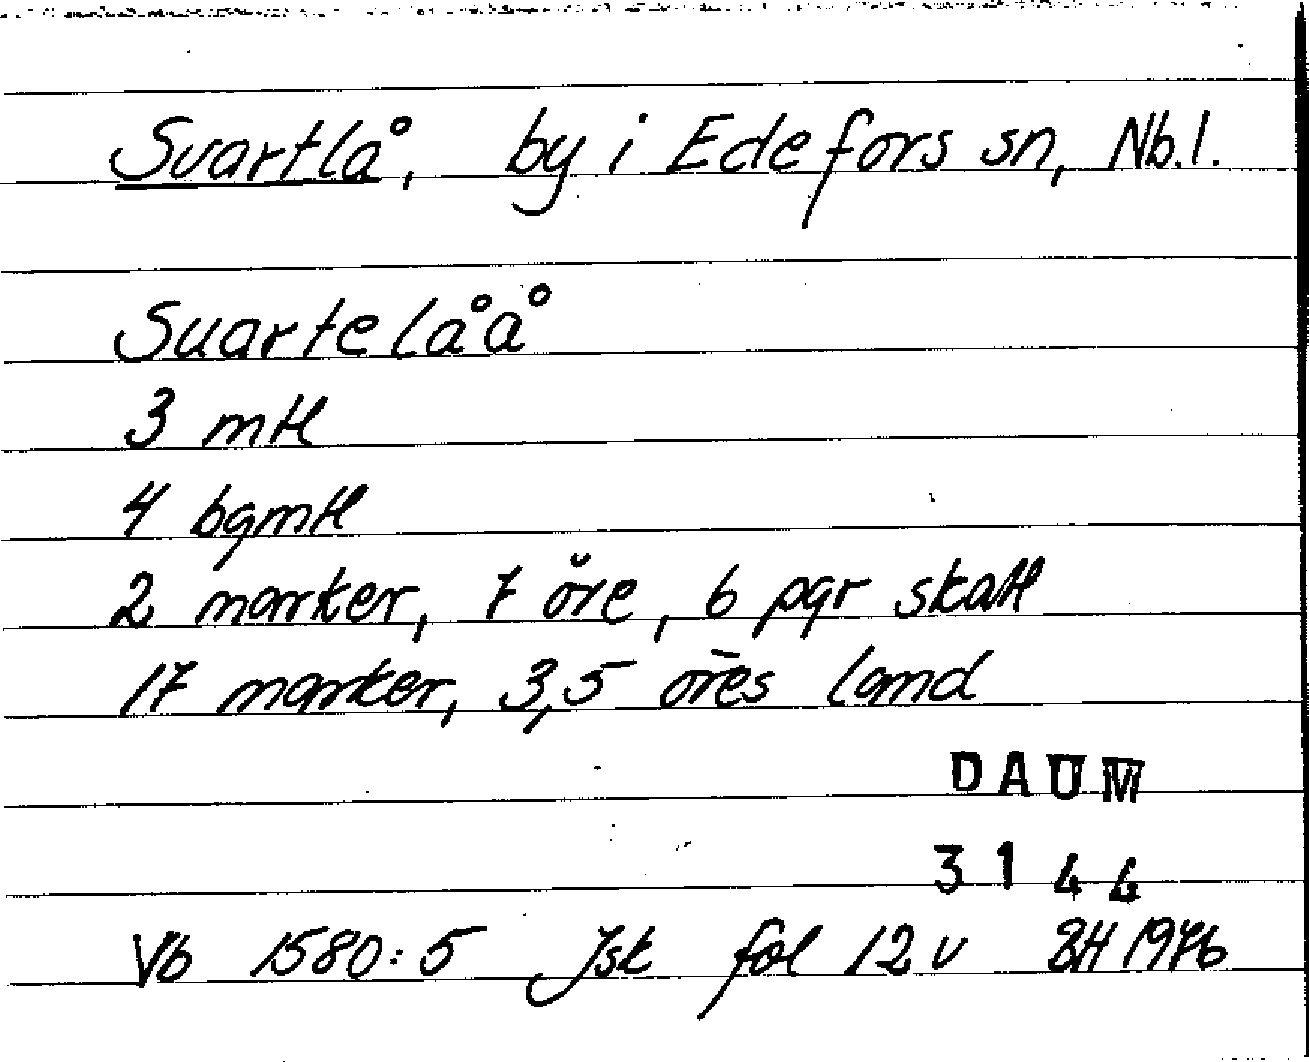 Svartlå, by i Edefors sn, Nb.l.
Suartelåå
3 mtl
4 bgmtl
2 marker, 7 öre, 6 pgr skatt
17 marker, 3,5 öres land
DAUM
3144
Vb 1580:5 Jsk fol 12 v BH 1976